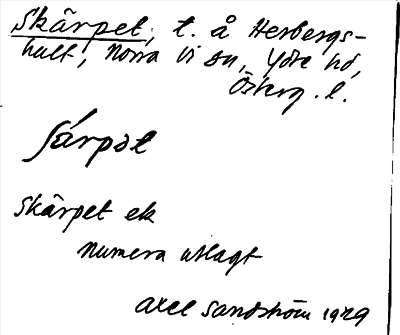 Skärpet, t. å Herbergs-
hult, Norra Vi sn, Ydre hd,
Österg. l.
Skärpet ek
numera utlagt
Axel Sandström 1929